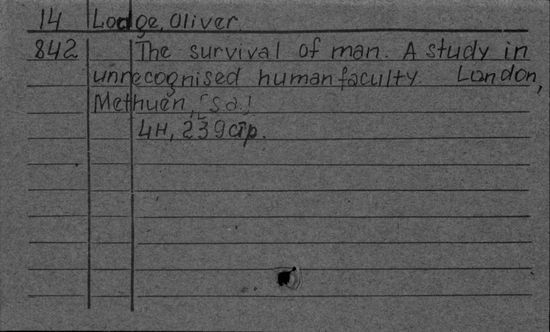 14 Lodge, Oliver.
842 The survival of man. A study in
unrecognised human faculty. London,
Methuen, [s.a.]
4н, 239 стр.